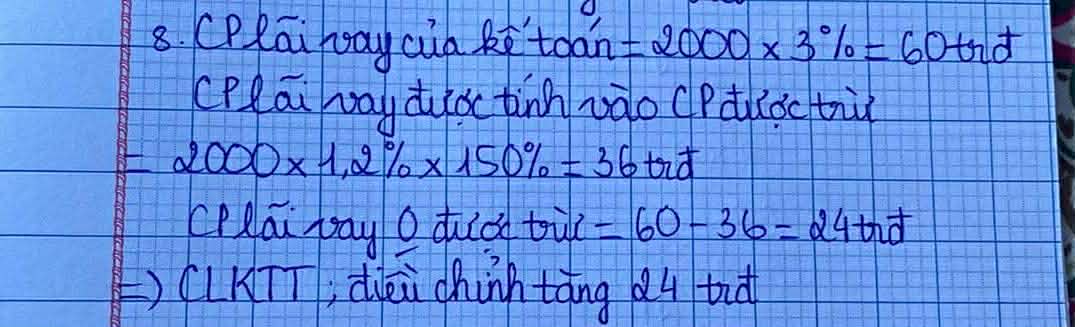 8. CP lãi vay của kế toán = 2000 x 3% = 60 trđ
CP lãi vay được tính vào CP được trừ
= 2000 x 1,2% x 150% = 36 trđ
CP lãi vay 0 được trừ = 60 - 36 = 24 trđ
=) CLKTT; điều chỉnh tăng 24 trđ